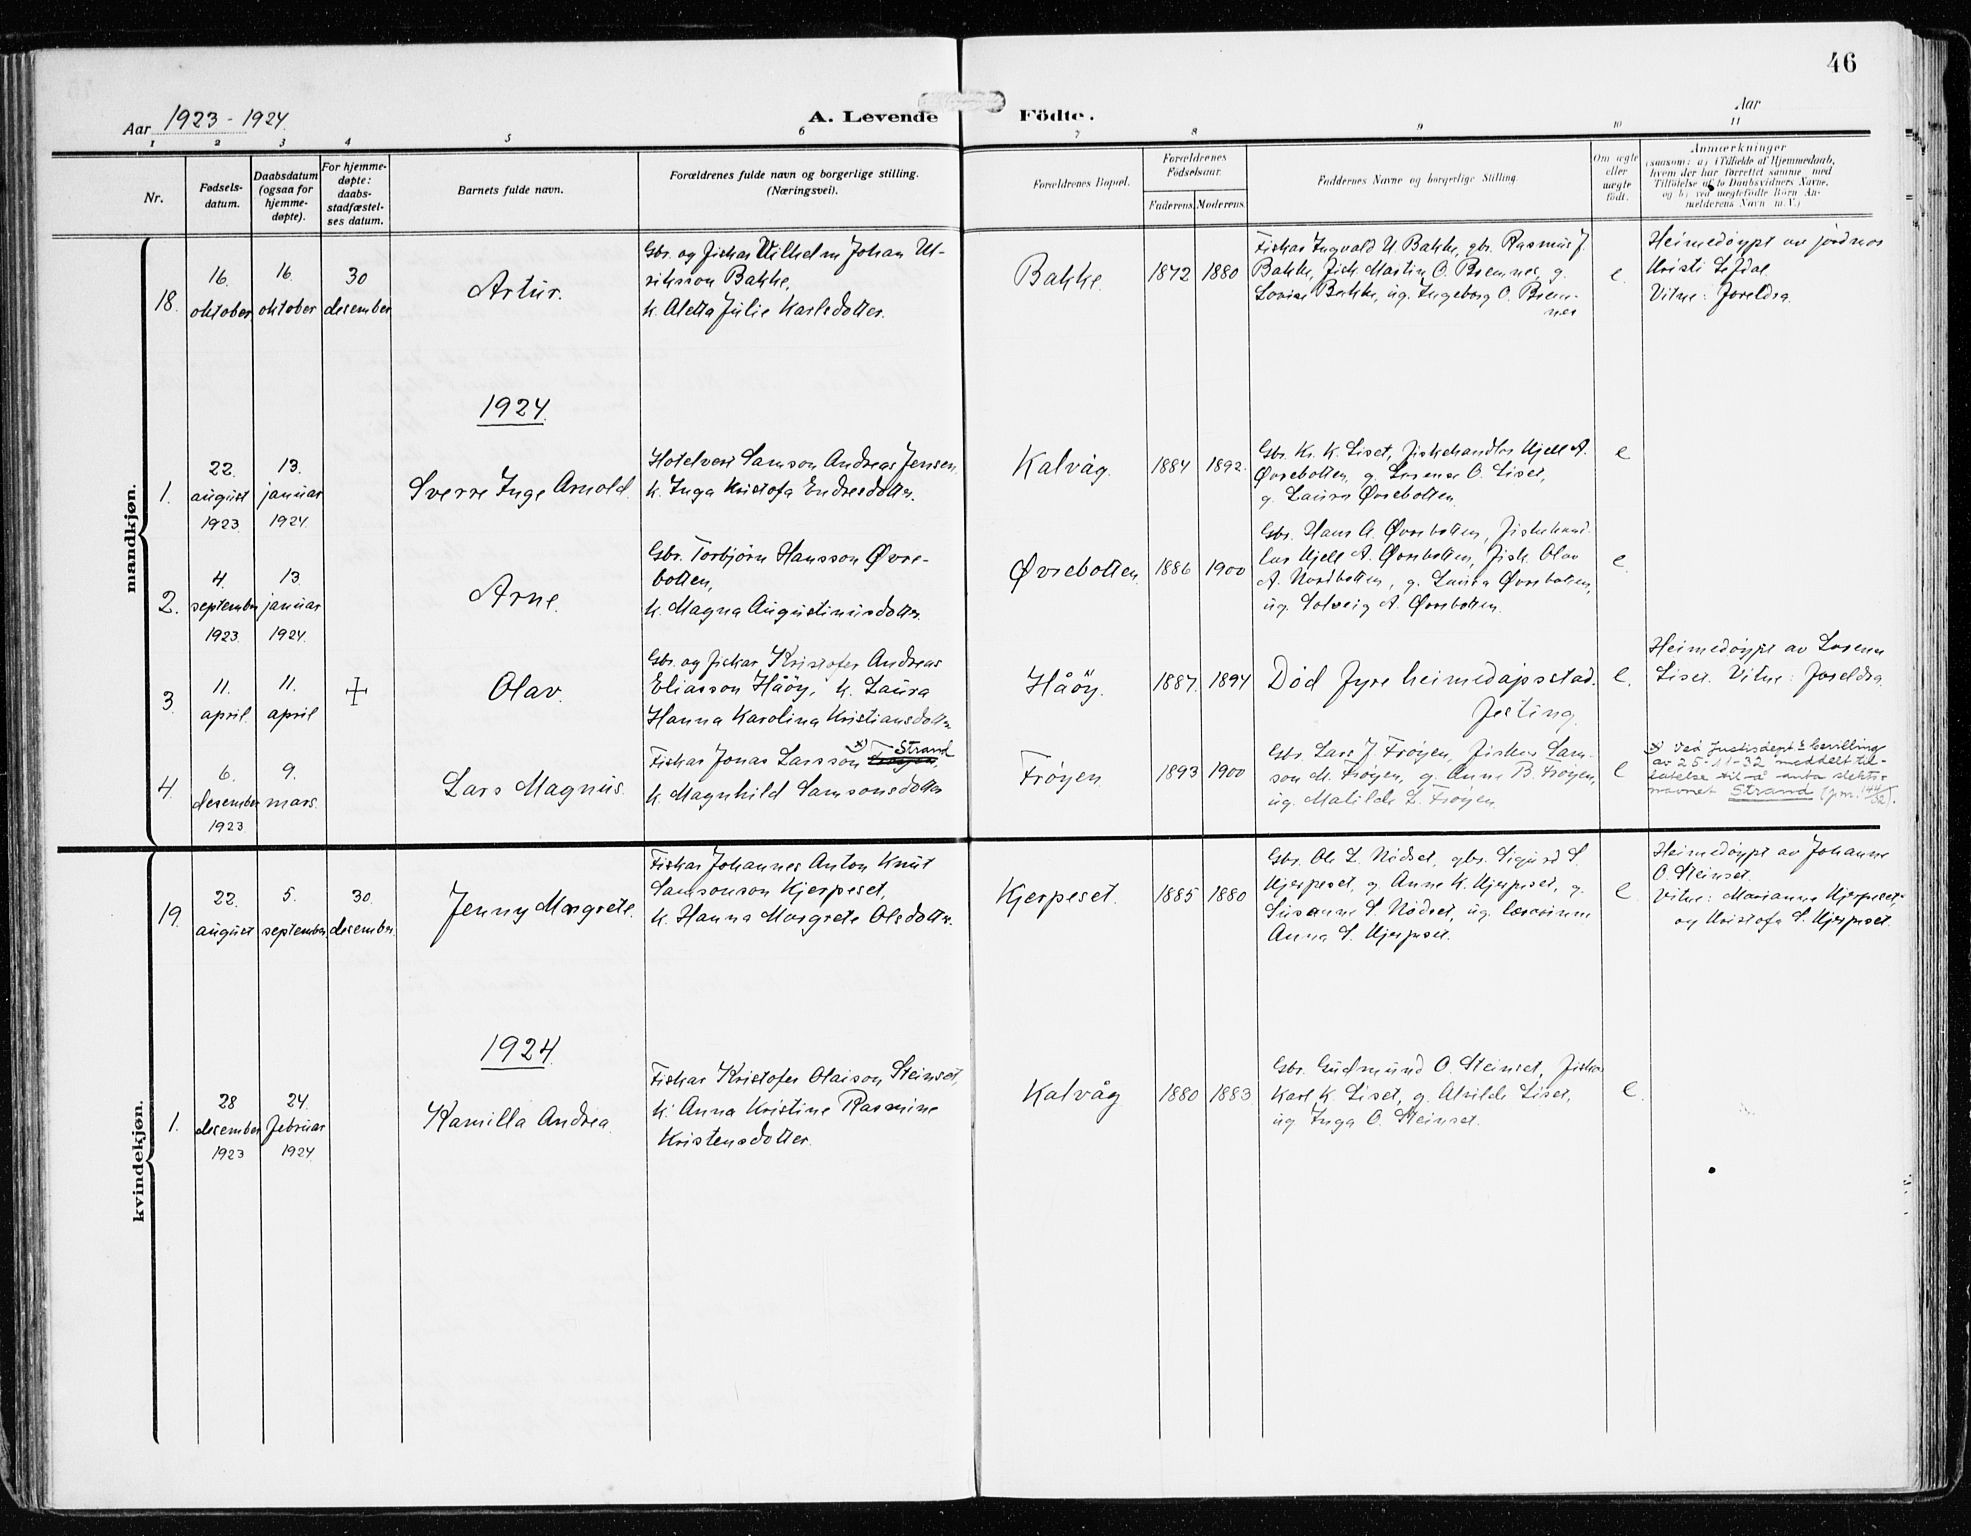 46
Aar 1923 - 1924.
A. Levende Födte.
Aar
1 2 3 4 5 6 7 8 9 10 11
Nr.
Fødsels-
datum.
Daabsdatum
(ogsaa for
hjemme-
døpte).
For hjemme-
døpte:
daabs-
stadfæstel-
ses datum.
Barnets fulde navn.
Forældrenes fulde navn og borgerlige stilling.
(Næringsvei).
Forældrenes Bopæl.
Forældrenes
Födselsaar.
Faderens. Moderens.
Faddernes Navne og borgerlige Stilling.
Om ægte
eller
uægte
födt.
Anmærkninger
(saasom: a) i Tilfælde af Hjemmedaab,
hvem der har forrettet samme, med
Tilföielse af to Daabsvidners Navne,
og b) ved uegtefödte Börn An-
melderens Navn m. V.)
mandkjøn.
18.
16.
oktober
16.
oktober
30
desember
Artur.
Gbr. og fiskar Vilhelm Johan Ul-
riksson Bakke,
k. Aletta Julie Karlsdotter.
Bakke.
1872 1880
Fiskar Ingvald U. Bakke, gbr. Rasmus J.
Bakke, fisk. Martin O. Bremnes, g.
Lovise Bakke, ug. Ingeborg O. Brem-
nes
e.
Heimedøypt av jordmor
Kristi Lefdal.
Vitne: Foreldra.
1924.
1.
22.
august
1923
13.
januar
1924.
Sverre Inge Arnold.
Hotelvert Samson Andreas Jensen,
k. Inga Kristofa Endresdotter.
Kalvåg.
1884 1892.
Gbr. Kr. K. Liset, fiskehandler Kjell A.
Øvrebotten, g. Lorense O. Liset,
g. Laura Øvrebotten
e
2.
4.
september
1923
13.
januar
1924.
Arne.
Gbr. Torbjørn Hansson Øvre-
botten,
k. Magna Augustinusdotter.
Øvrebotten.
1886 1900
Gbr. Hans A. Øvrebotten, fiskehand-
lar Kjell A. Øvrebotten, fisk. Olav
A. Nordbotten, g. Laura Øvrebotten,
ug. Solveig A. Øvrebotten.
e.
3
11.
april.
11.
april
Olav.
Gbr. og fiskar Kristofer Andreas
Eliasson Håöy, k. Laura
Hanna Karolina Kristiansdotter
Håöy.
1887. 1894
Död fyre heimedåpsstad-
festing.
e.
Heimedøypt av Lorens
Liset. Vitne: Foreldra.
4.
6.
desember
1923
9.
mars.
Lars Magnus.
Strand
Fiskar Jonas Larsson x) Frøyen,
k. Magnhild Samsonsdotter
Frøyen.
1893 1900
Gbr. Lars J. Frøyen, fiskar Sam-
son M. Frøyen, g. Anne B. Frøyen,
ug. Matilde L. Frøyen.
e
x) Ved Justisdept.s bevilling
av 25-11-32 meddelt til-
latelse til å anta slekts-
navnet Strand (jm. 144/32).
kvindekjøn.
19.
22.
august
5.
september
30.
desember.
Jenny Margrete.
Fiskar Johannes Anton Knut
Samsonson Kjerpeset,
k. Hanna Margrete Olsdotter.
Kjerpeset.
1885 1880
Gbr. Ole L. Nödset, gbr. Sigurd S.
Kjerpeset, g. Anne K. Kjerpeset, g.
Susanne S. Nödset, ug. lærarinne
Anna S. Kjerpeset.
e.
Heimedøypt av Johanne
O. Steinset.
Vitne: Marianne Kjerpeset,
og Kristofa S. Kjerpeset.
1924.
1.
28
desember
1923
24.
februar
1924.
Kamilla Andrea.
Fiskar Kristofer Olaison Steinset,
k. Anna Kristine Rasmine
Kristensdotter.
Kalvåg
1880 1883
Gbr. Gudmund O. Steinset, fiskar
Karl K. Liset, g. Alvilde Liset,
ug Inga O. Steinset.
e.